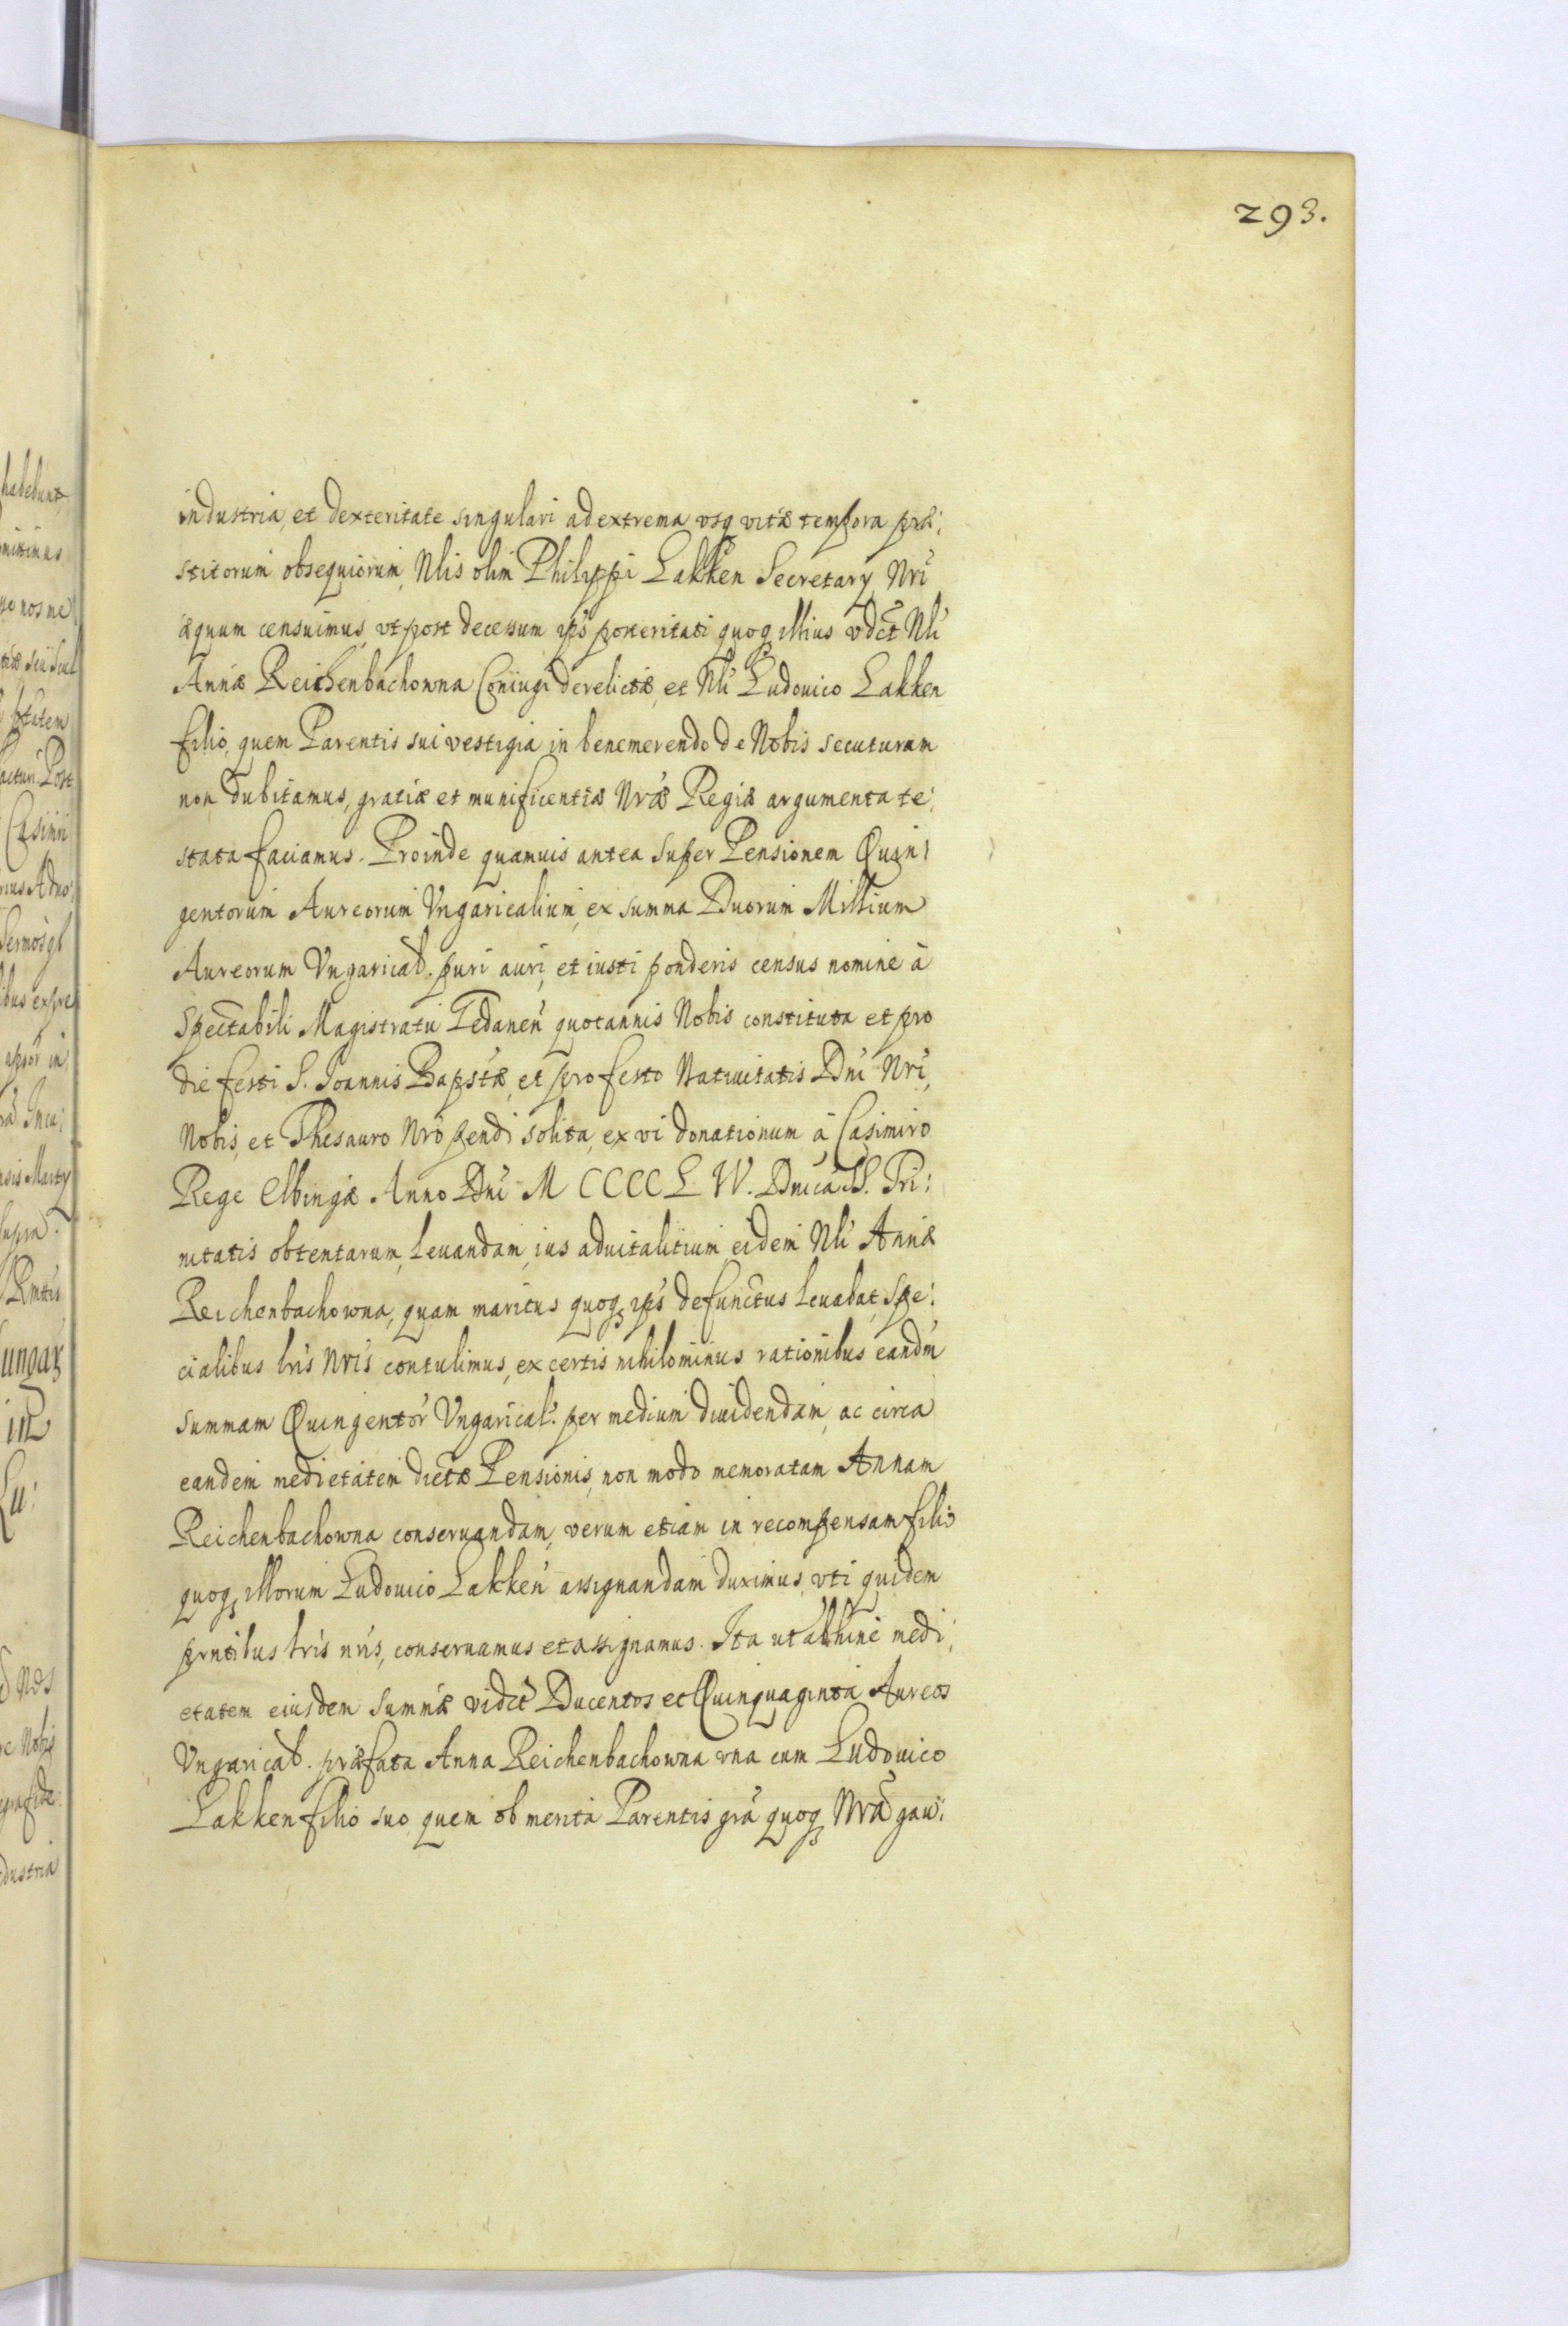 293.
industria, et dexteritate singulari ad extrema vsq vitæ tempora præ:
stitorum obsequiorum, Nlis olim Philippi Lakken Secretary Nri
æquum censuimus, vt post decessum ips posteritati quoq illius vdct Nli
Annæ Reichenbachowna Coniugi derelictæ, et Nli Ludouico Lakken
filio, quem Parentis sui vestigia in benemerendo de Nobis secuturam
non dubitamus, gratiæ et munificentiæ Nræ Regiæ argumenta te:
stata faciamus. Proinde quamuis antea super Pensionem Quin:
gentorum Aureorum Vngaricalium, ex summa Duorum Millium
Aureorum Vngarical. puri auri, et iusti ponderis census nomine à
Spectabili Magistratu Gedanen quotannis Nobis constituta et pro
die festi S. Joannis Bapstæ, et pro festo Natiuitatis Dni Nri,
Nobis, et Thesauro Nro pendi solita, ex vi donationum à Casimiro
Rege Elbingæ Anno Dni M CCCC L VV. Dnica SS. Tri:
nitatis obtentarum, leuandam, ius aduitalitium eidem Nli Annæ
Reichenbachowna, quam maritus quoq ips defunctus leuabat, Spe:
cialibus lris Nris contulimus, ex certis nihilominus rationibus eandm
summam Quingentor Vngarical. per medium diuidendam, ac circa
eandem medietatem dictæ Pensionis, non modo memoratam Annam
Reichenbachowna conseruandam, verum etiam in recompensam filio
quoq illorum Ludouico Lakken assignandam duximus, vti quidem
prntibus lris nris, conseruamus et assignamus. Ita ut abhinc medi:
etatem eiusdem summæ vidct Ducentos et Quinquaginta Aureos
Vngarical. præfata Anna Reichenbachowna vna cum Ludouico
Lakken filio suo, quem ob merita Parentis gra quoq Nra gau: